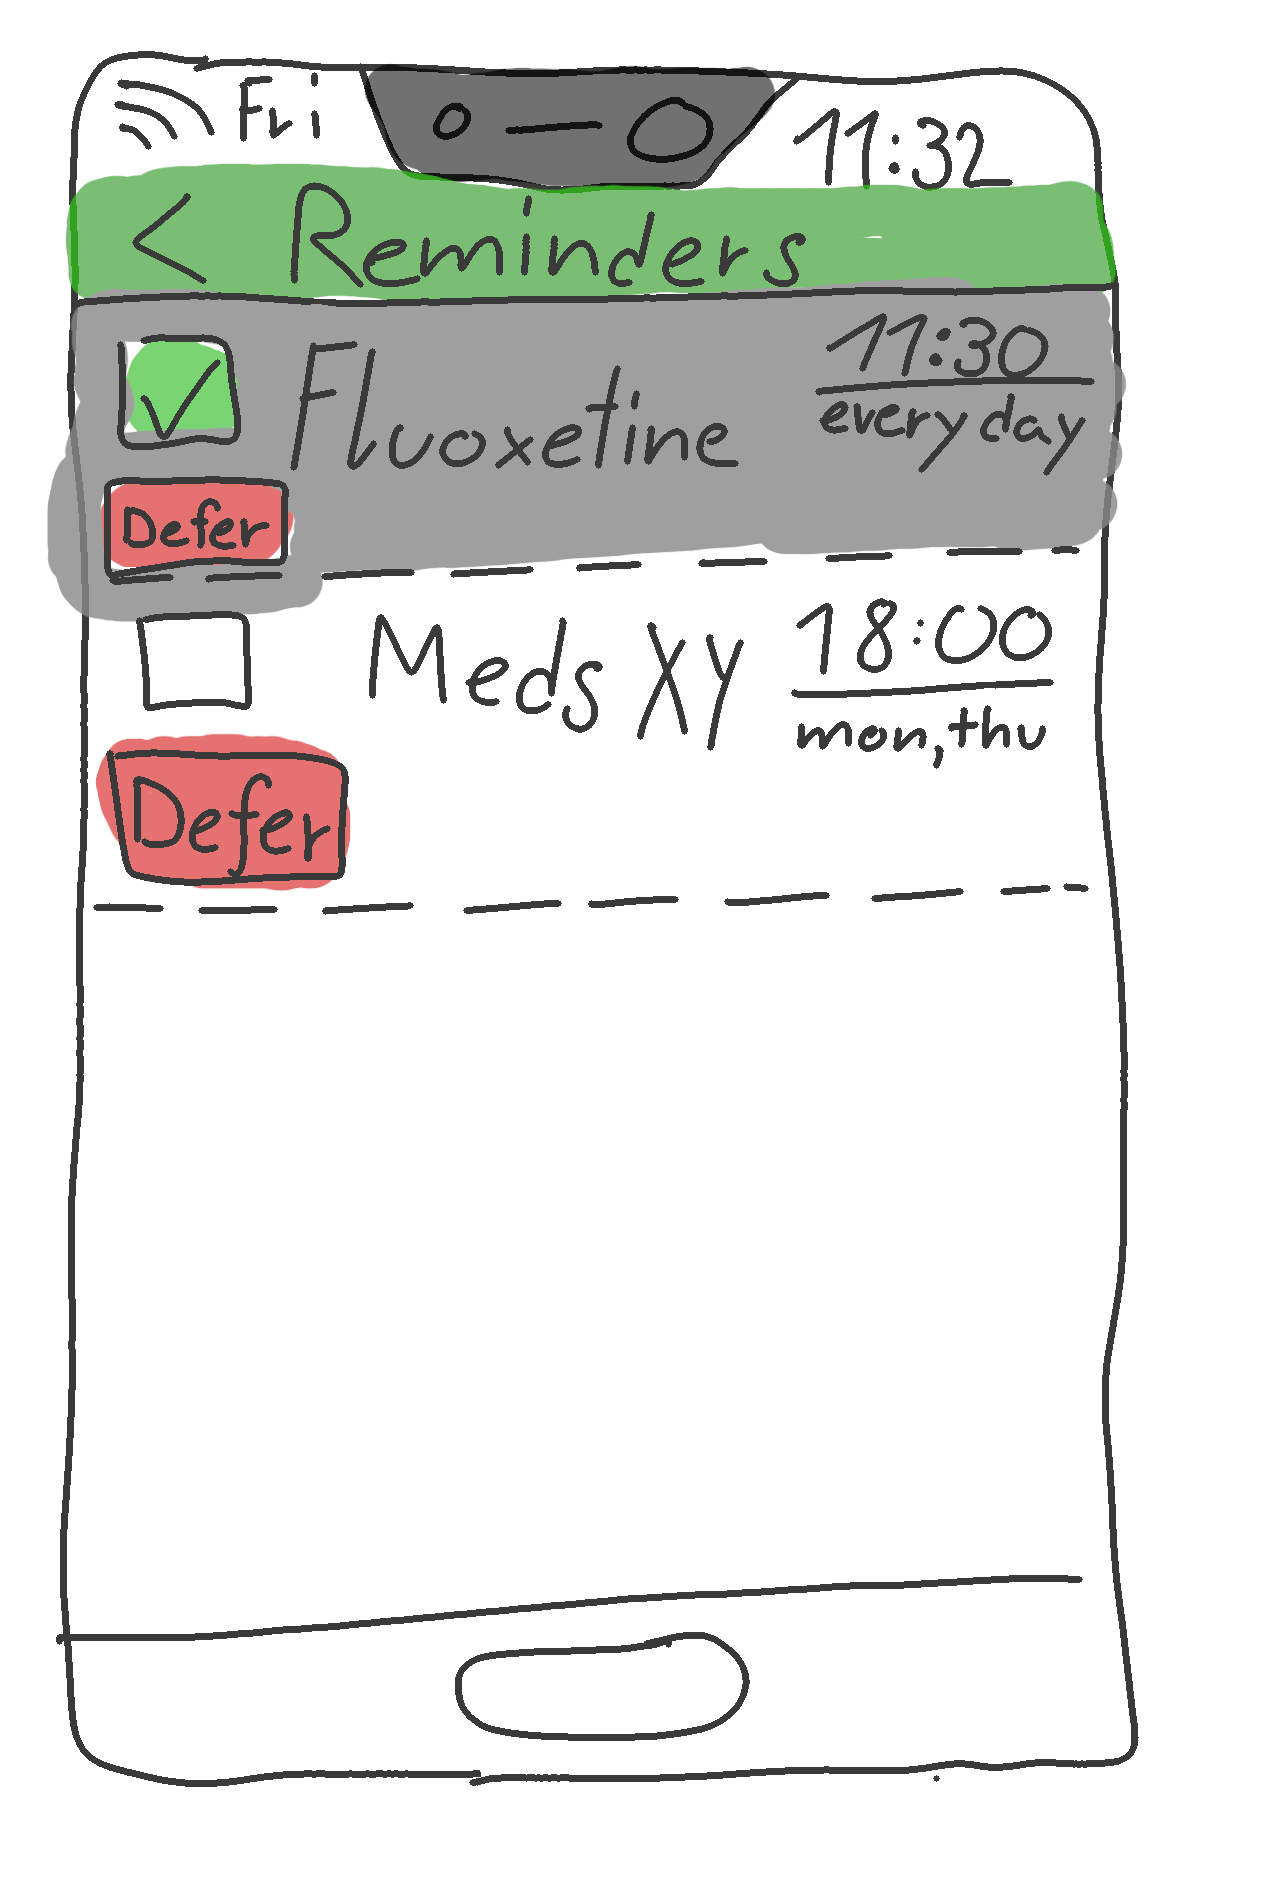 Fri 11:32
< Reminders
Fluoxetine 11:30
every day
Defer
Meds XY 18:00
mon, thu
Defer